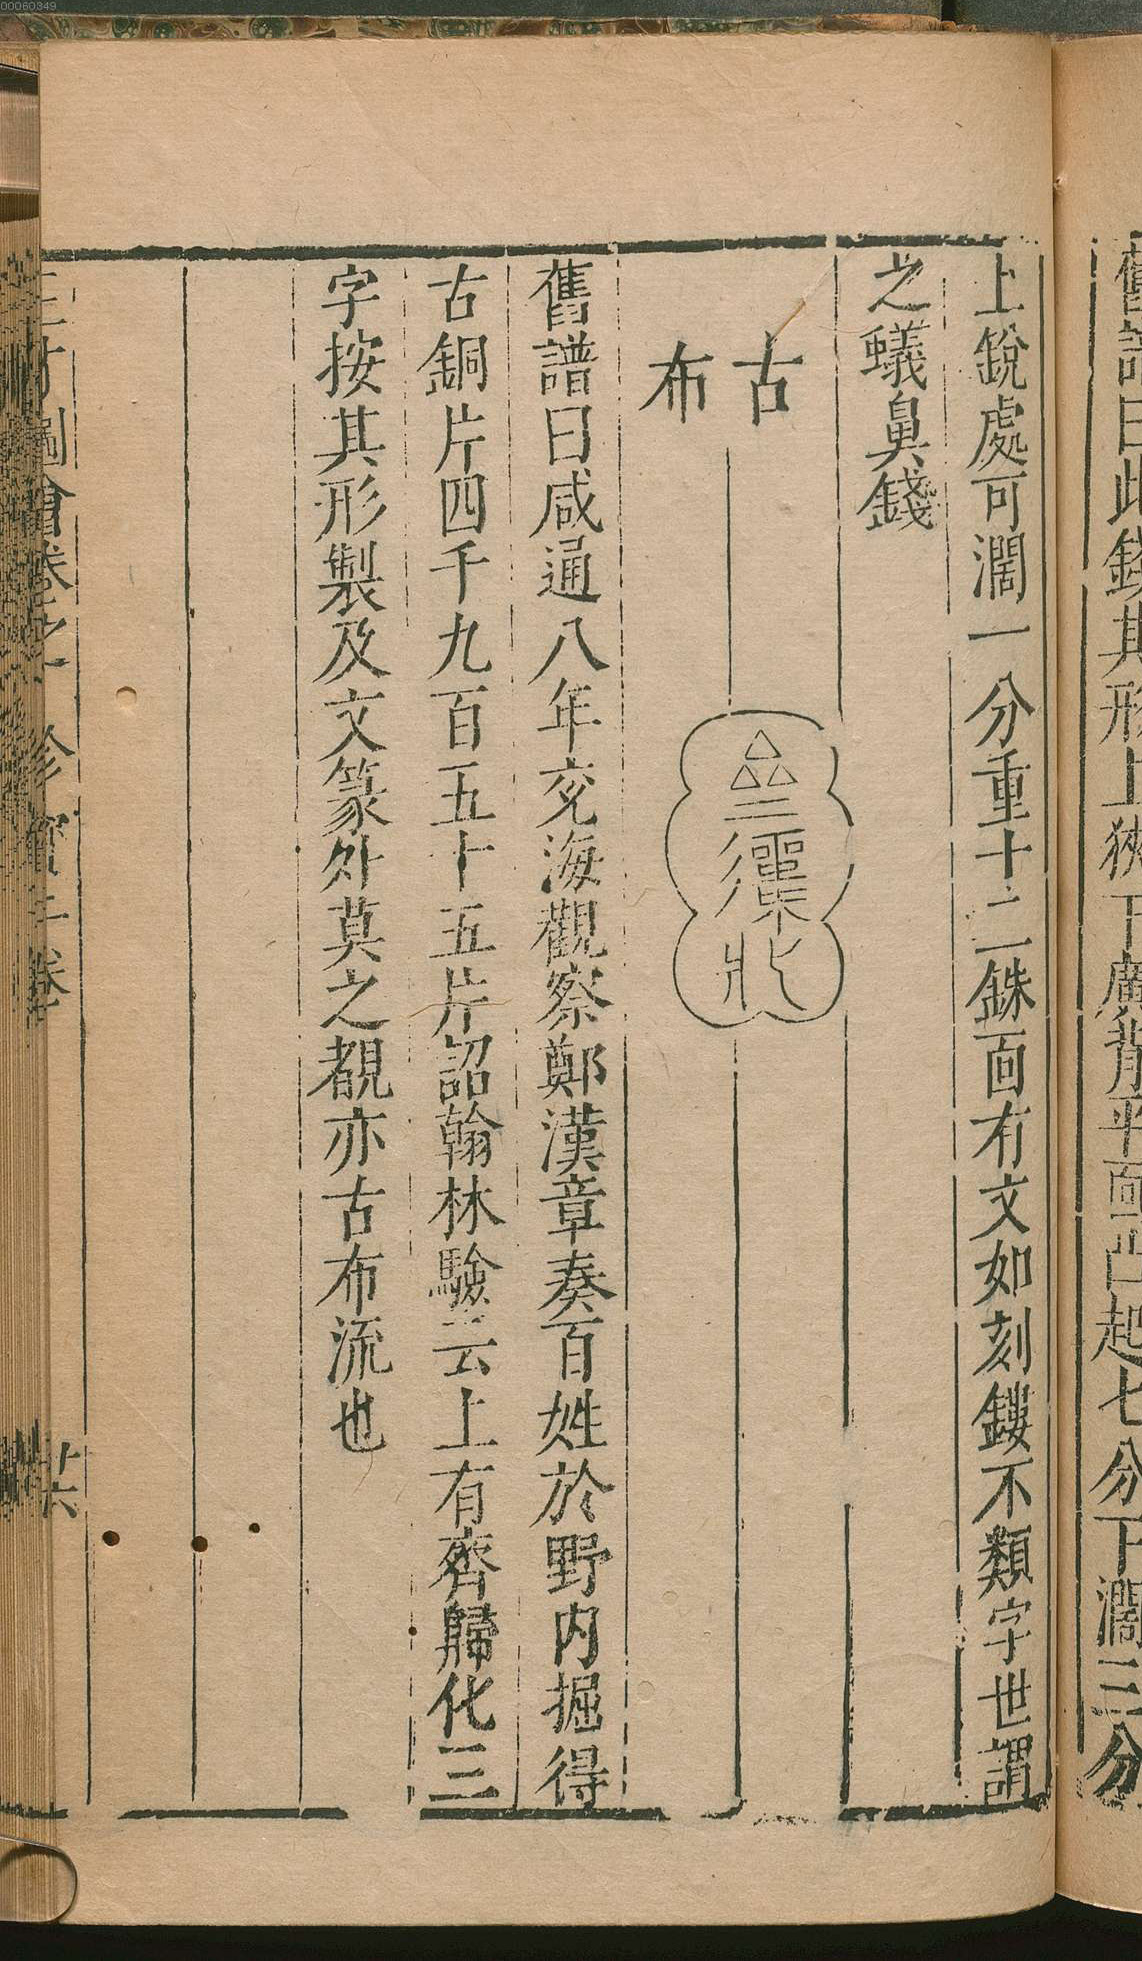 舊譜曰此錢其形上狹下廣背平面正凸起七分下濶三分
上銳處可濶一分重十二銖面有文如刻鏤不類字世謂
之蟻鼻錢
古
布
舊譜曰咸通八年交海觀察鄭漢章奏百姓於野内掘得
古銅片四千九百五十五片詔翰林驗云上有齊歸化三
字按其形製及文篆外莫之覩亦古布流也
三才圖會卷之一 珍寶二卷
廿六
00060349